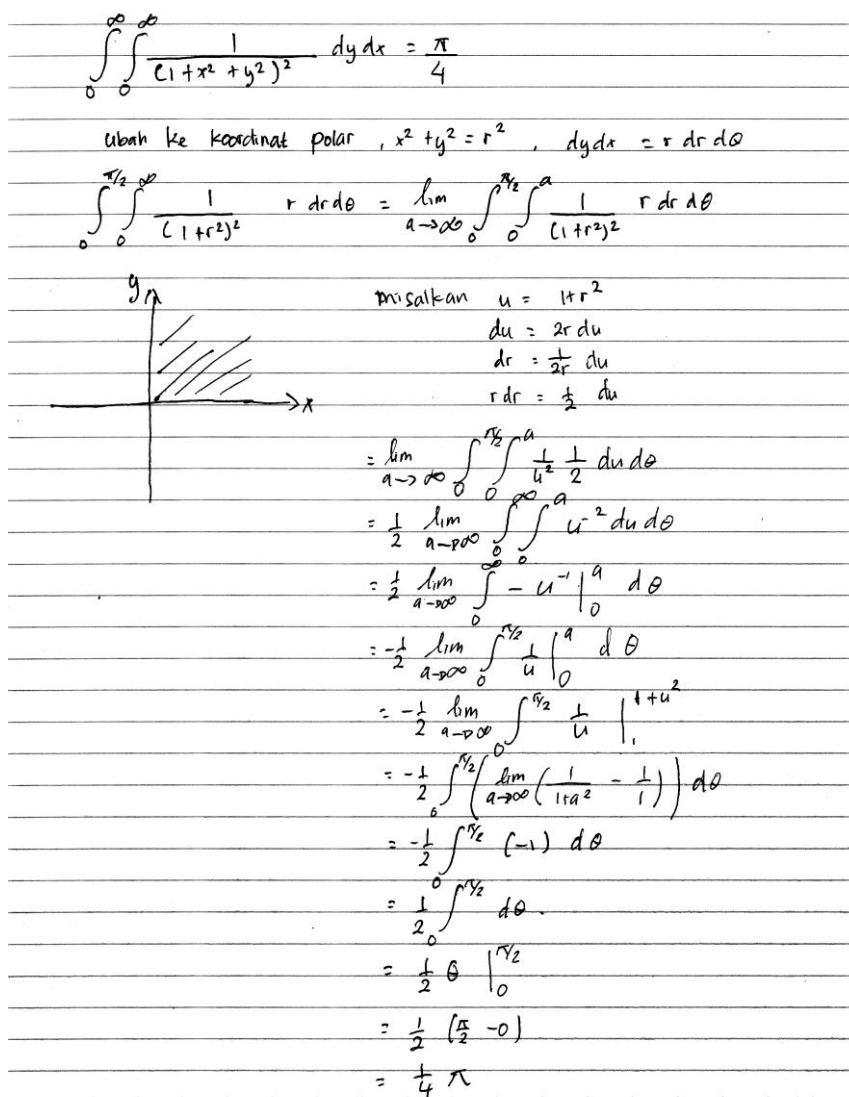 ∫₀^∞ ∫₀^∞ 1/(1+x²+y²)² dy dx = π/4
ubah ke koordinat polar, x²+y²=r², dydx = r dr dθ
∫₀^{π/2} ∫₀^∞ 1/(1+r²)² r dr dθ = lim_{a→∞} ∫₀^{π/2} ∫₀^a 1/(1+r²)² r dr dθ
y
x
misalkan u = 1+r²
du = 2r du
dr = 1/2r du
r dr = 1/2 du
= lim_{a→∞} ∫₀^{π/2} ∫₀^a 1/u² 1/2 du dθ
= 1/2 lim_{a→∞} ∫₀^∞ ∫₀^a u⁻² du dθ
= 1/2 lim_{a→∞} ∫₀^∞ -u⁻¹ |₀^a dθ
= -1/2 lim_{a→∞} ∫₀^{π/2} 1/u |₀^a dθ
= -1/2 lim_{a→∞} ∫₀^{π/2} 1/u |₁^{1+u²}
= -1/2 ∫₀^{π/2} (lim_{a→∞} (1/(1+a²) - 1/1)) dθ
= -1/2 ∫₀^{π/2} (-1) dθ
= 1/2 ∫₀^{π/2} dθ.
= 1/2 θ |₀^{π/2}
= 1/2 (π/2 - 0)
= 1/4 π